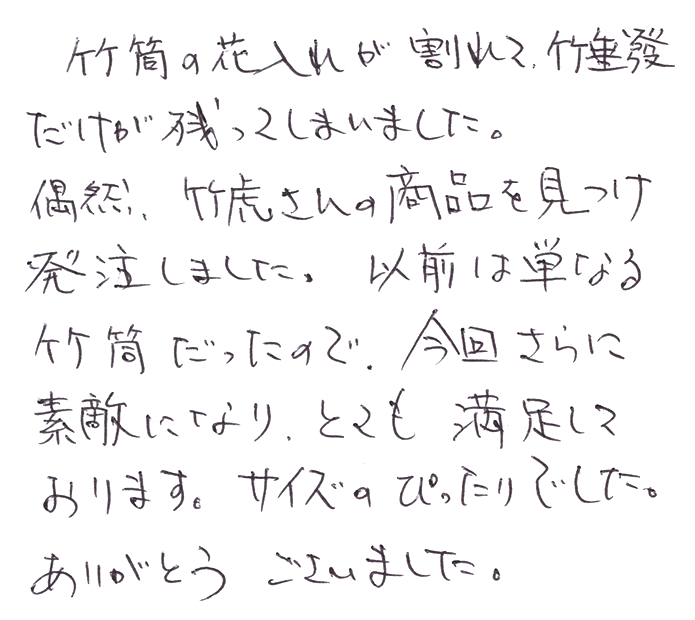 竹筒の花入れが割れて、竹
だけが残ってしまいました。
偶然、竹虎さんの商品を見つけ
発注しました。以前は単なる
竹筒だったので、今回さらに
素敵になり、とても満足して
おります。サイズのぴったりでした。
ありがとうございました。